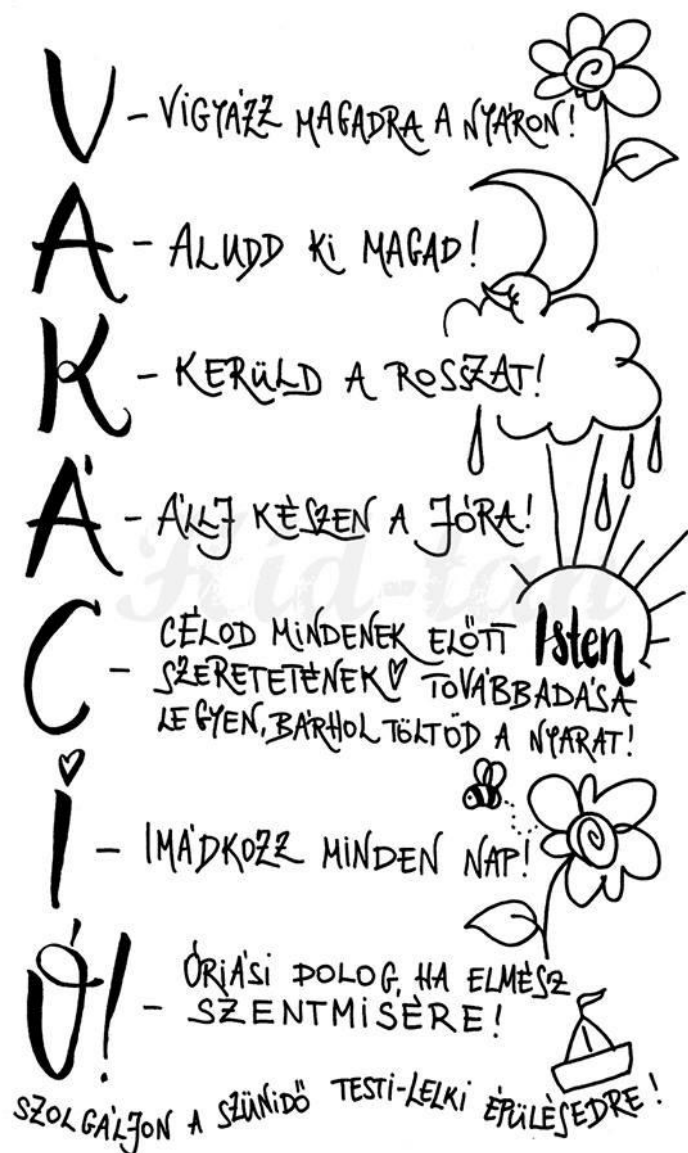 V - VIGYÁZZ MAGADRA A NYÁRON!
A - ALUDD KI MAGAD!
K - KERÜLD A ROSSZAT!
Á - ÁLLJ KÉSZEN A JÓRA!
Kid-lad
C - CÉLOD MINDENEK ELŐTT Isten
SZERETETÉNEK TOVÁBBADÁSA
LEGYEN, BÁRHOL TÖLTÖD A NYARAT!
I - IMÁDKOZZ MINDEN NAP!
Ó! - ÓRIÁSI DOLOG, HA ELMÉSZ
SZENTMISÉRE!
SZOLGÁLJON A SZÜNIDŐ TESTI-LELKI ÉPÜLÉSEDRE!